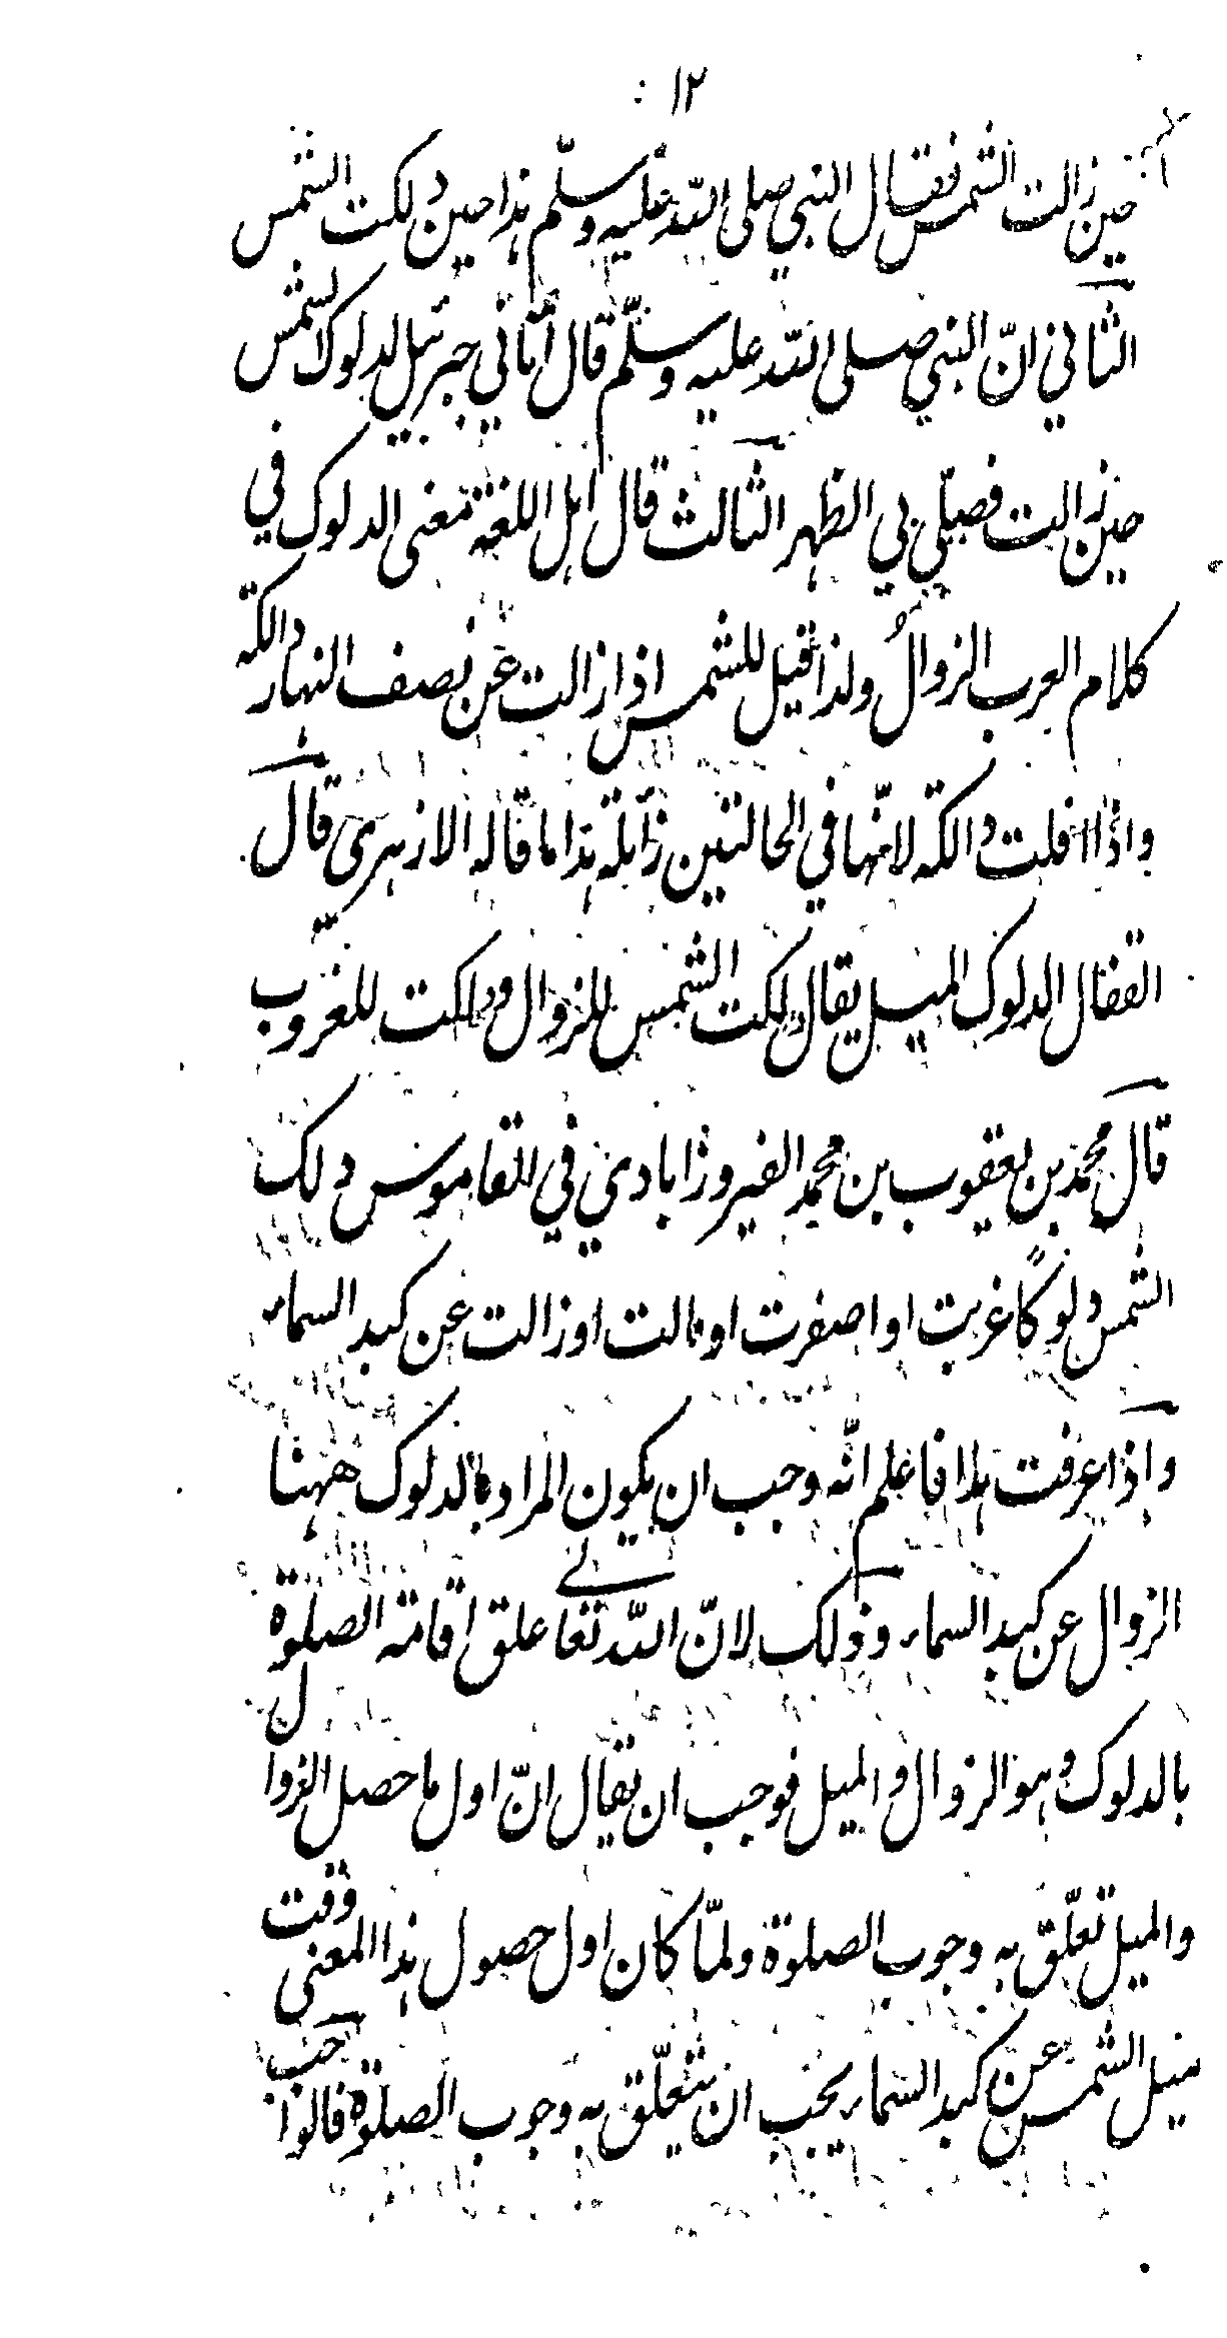 ١٢:
حين زالت الشمس فقال النبي صلى الله عليه وسلّم هذا حين دلكت الشمس
الثاني انّ النبي صلى الله عليه وسلّم قال أتاني جبرئيل لدلوك الشمس
حين زالت فصلّى بي الظهر الثالث قال اهل اللغة معنى الدلوك في
كلام العرب الزوالُ ولذا قيل للشمس اذا زالت عن نصف النهار دالكة
واذا افلت دالكة لانّها في الحالتين زائلة هذا ما قاله الازهري قال
القفال الدلوك الميل يقال دلكت الشمس للزوال ودلكت للغروب
قال محمد بن يعقوب بن محمد الفيروزابادي في القاموس دلك
الشمس دلوكًا غربت او اصفرت او مالت او زالت عن كبد السماء
واذا عرفت هذا فاعلم انّه وجب ان يكون المراد بالدلوك ههنا
الزوال عن كبد السماء وذلك لانّ الله تعالى علق اقامة الصلوة
بالدلوك وهو الزوال والميل فوجب ان يقال انّ اول ما حصل الزوال
والميل تعلّق به وجوب الصلوة ولمّا كان اول حصول هذا المعنى وقت
ميل الشمس عن كبد السماء يجب ان يتعلّق به وجوب الصلوة قالوا